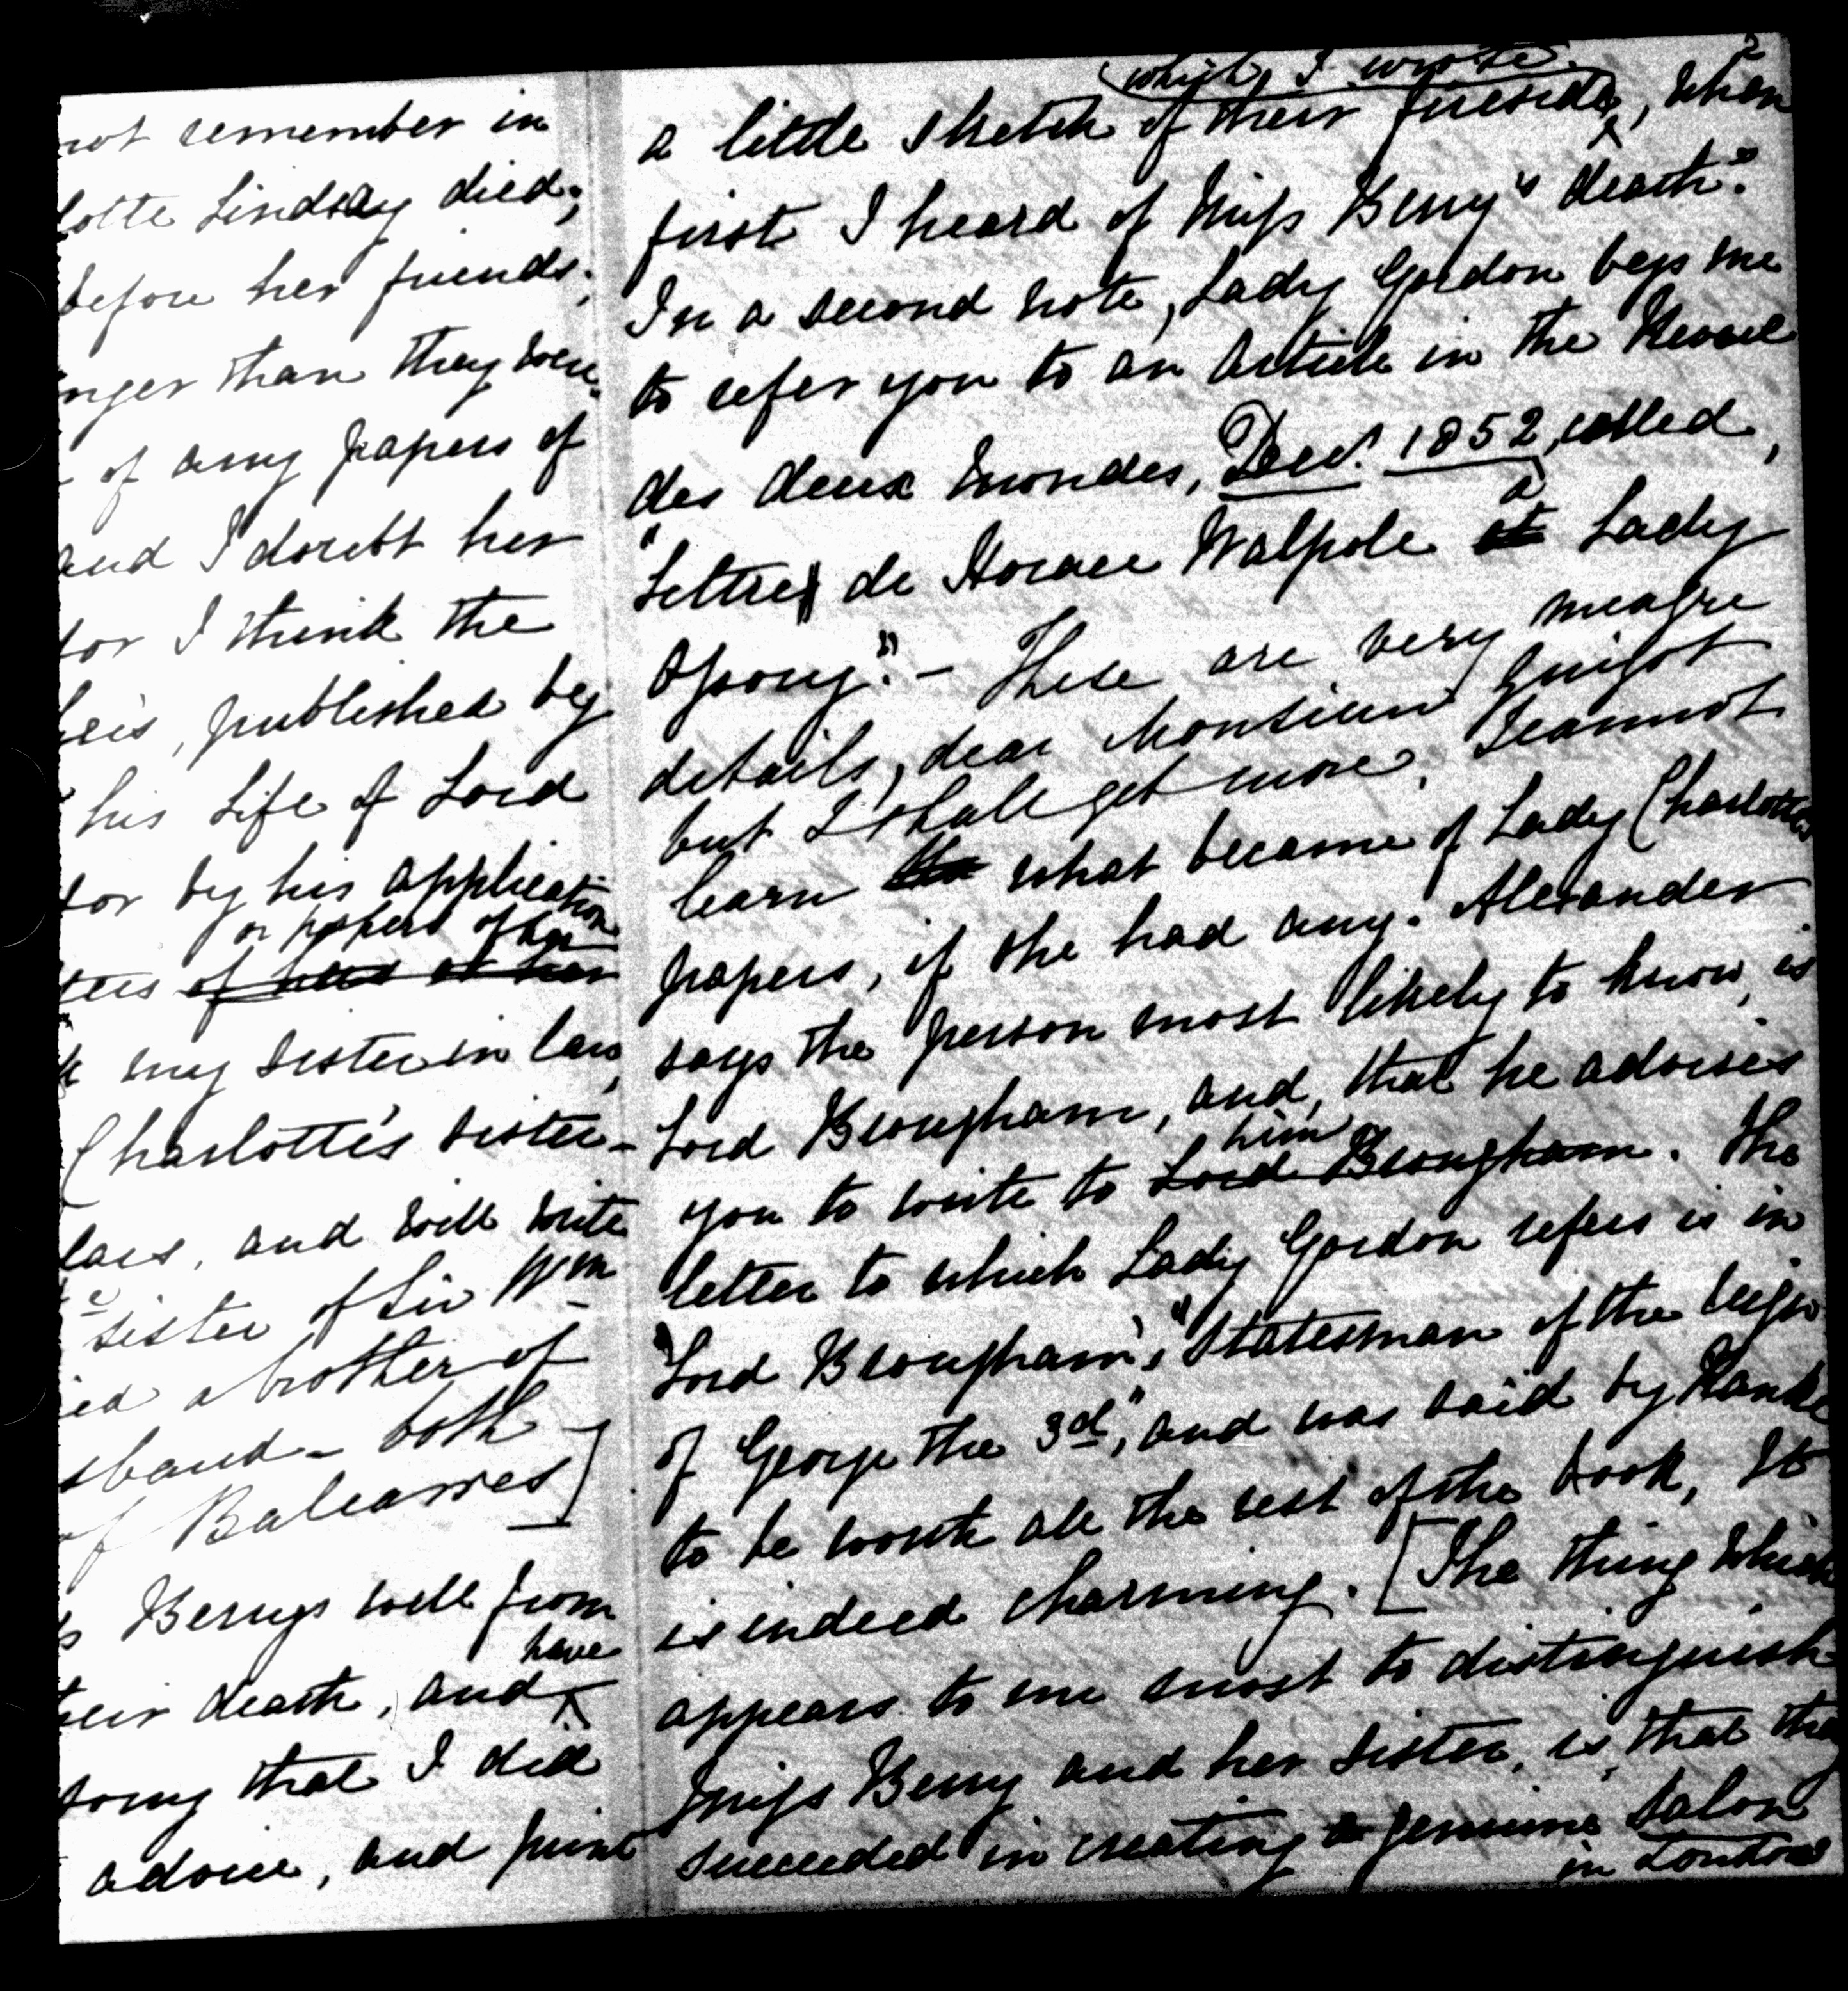 not remember in
lotte Lindsay died;
before her friends;
nger than they were,
of any papers of
and I doubt her
for I think the
hers, published by
his Life of Lord
for by his application
or papers of her
ters of hers or her
my sister in law,
Charlotte's sister -
lars, and will write
sister of Sir Wm
ied a brother of
sband - both
of Balcarres]
s Berrys well from
have
their death, and
sorry that I did
advice, and print
2
which I wrote
a little sketch of their fireside, when
first I heard of Miss Berry's death."
In a second note, Lady Gordon begs me
to refer you to an article in the Revue
des deux mondes, Decr. 1852, called,
à
"Lettres de Horace Walpole at Lady
Ossory." - These are very meagre
details, dear Monsieur Guizot
but I shall get more. I cannot
learn the what became of Lady Charlotte's
papers, if she had any. Alexander
says the person most likely to know, is
Lord Brougham, and, that he advises
him
you to write to Lord Brougham. The
letter to which Lady Gordon refers is in
"Lord Brougham's, "Statesman of the reign
of George the 3d", and was said by Ranke
to be worth all the rest of the book, It
is indeed charming. [The thing which
appears to me most to distinguish
Miss Berry and her sister, is, that they
succeeded in creating a genuine salon
in London